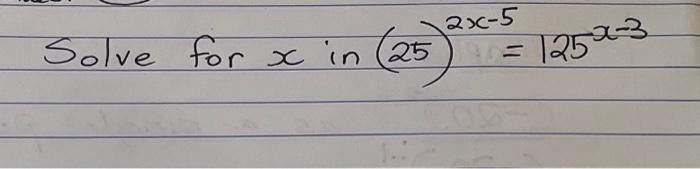 Solve for x in (25)^{2x-5} = 125^{x-3}